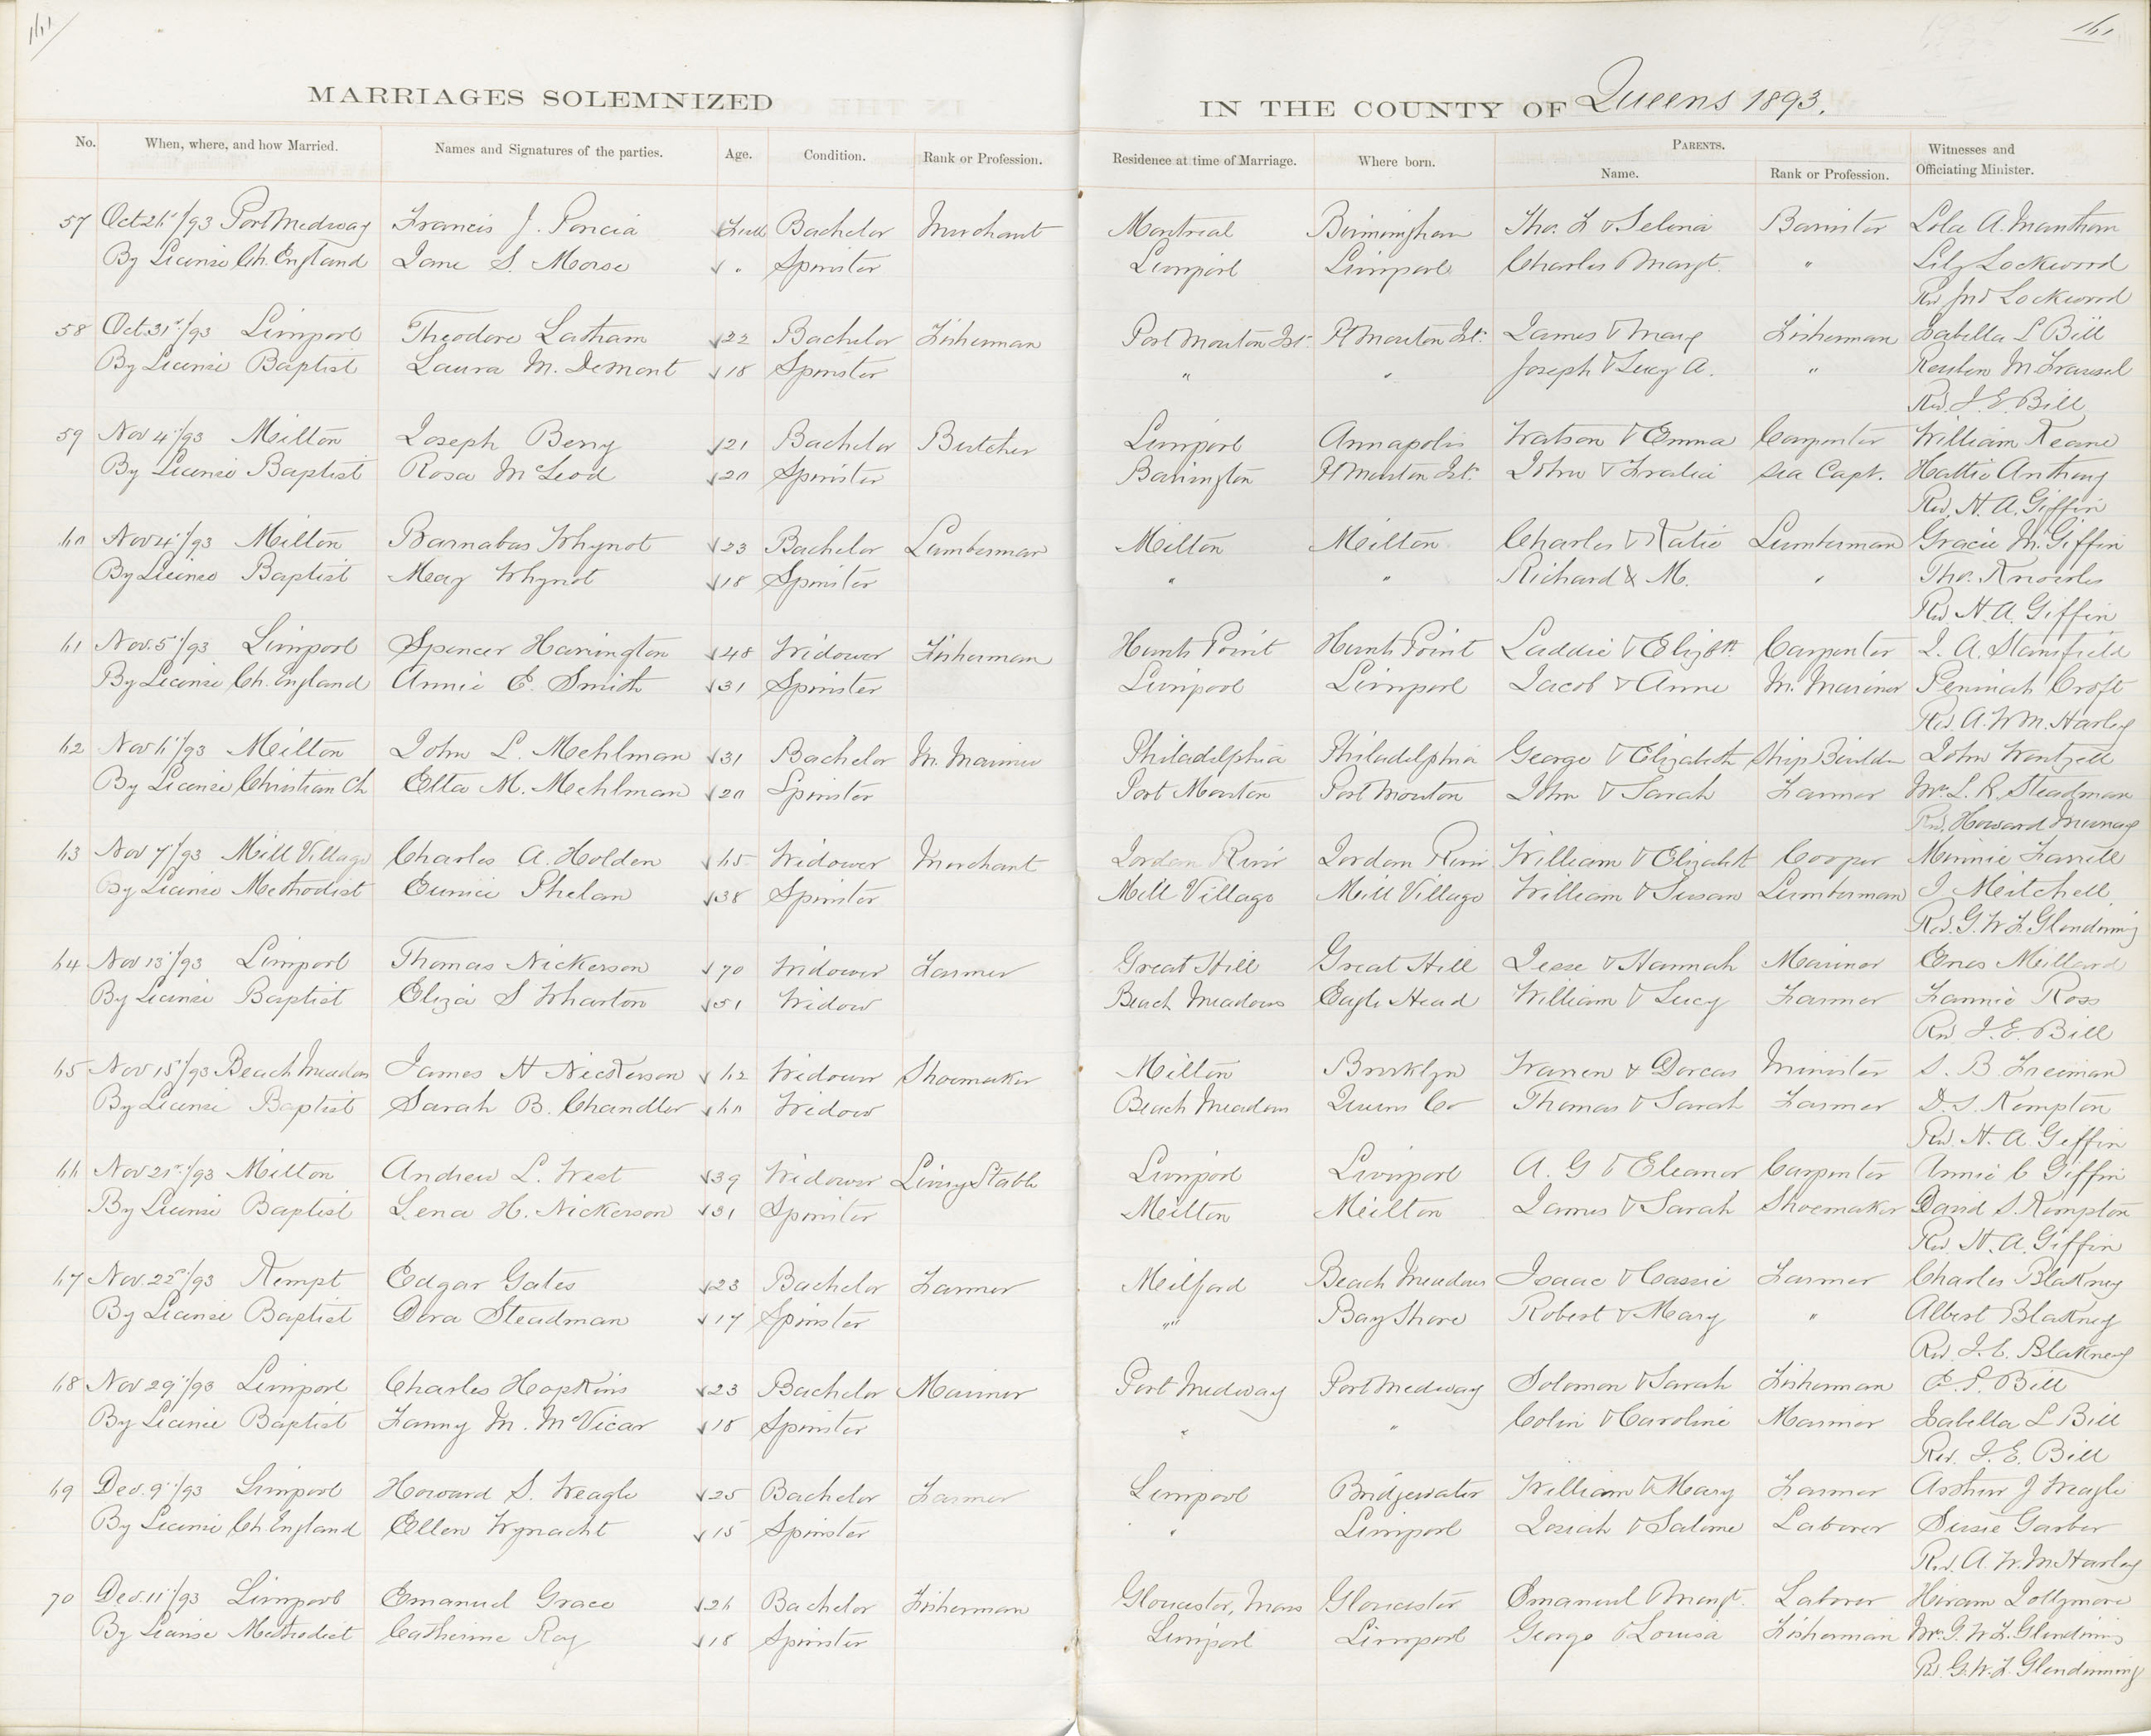 161
161
MARRIAGES SOLEMNIZED IN THE COUNTY OF Queens 1893.
No. When, where, and how Married. Names and Signatures of the parties. Age. Condition. Rank or Profession. Residence at time of Marriage. Where born. PARENTS. Name. Rank or Profession. Witnesses and Officiating Minister.
57 Oct 26"/93 Port Medway Francis J. Poncia Full Bachelor Merchant Montreal Birmingham Tho. F & Selina Barrister Lola A. Mantham
By License Ch. England Jane S. Morse " Spinster Liverpool Liverpool Charles & Margt. " Lily Lockwood
Rev Jno Lockwood
58 Oct. 31st/93 Liverpool Theodore Latham 22 Bachelor Fisherman Port Mouton Isl. Pt Mouton Isl. James & Mary Fisherman Isabella L Bill
By License Baptist Laura M. DeMont 18 Spinster " " Joseph & Lucy A. " Reuben M
Rev. I. E. Bill
59 Nov 4"/93 Milton Joseph Berry 21 Bachelor Butcher Liverpool Annapolis Watson & Emma Carpenter William Keane
By License Baptist Rosa McLeod 20 Spinster Barrington Pt Mouton Isl. John & Sea Capt. Hattie Anthony
Rev. H. A. Giffin
60 Nov 4"/93 Milton Barnabas Whynot 23 Bachelor Lumberman Milton Milton Charles & Katie Lumberman Gracie M. Giffin
By License Baptist May Whynot 18 Spinster " " Richard & M. " Tho. Knowles
Rev H. A. Giffin
61 Nov. 5"/93 Liverpool Spencer Harrington 48 Widower Fisherman Hunts Point Hunts Point Laddie & Elizbth Carpenter J. A. Stansfield
By License Ch. England Annie E. Smith 31 Spinster Liverpool Liverpool Jacob & Anne M. Mariner Peninah Croft
Rev. A. W M. Harley
62 Nov 6"/93 Milton John L. Mehlman 31 Bachelor M. Mariner Philadelphia Philadelphia George & Elizabeth Ship Builder John Wentzell
By License Christian Ch Etta M. Mehlman 20 Spinster Port Mouton Port Mouton John & Sarah Farmer Mrs. L. R. Steadman
Rev. Howard Murray
63 Nov 7"/93 Mill Village Charles A. Holden 65 Widower Merchant Jordan River Jordan River William & Elizabeth Cooper Minnie Farrell
By License Methodist Eunice Phelan 38 Spinster Mill Village Mill Village William & Susan Lumberman J Mitchell,
Rev. G. W F. Glendinning
64 Nov 13"/93 Liverpool Thomas Nickerson 70 Widower Farmer Great Hill Great Hill Jesse & Hannah Mariner Enos Millard
By License Baptist Eliza S Wharton 51 Widow Beach Meadows Eagle Head William & Lucy Farmer Fannie Ross
Rev I. E. Bill
65 Nov 15"/93 Beach Meadows James H Nickerson 62 Widower Shoemaker Milton Brooklyn Warren & Dorcas Minister S. B. Freeman
By License Baptist Sarah B. Chandler 60 Widow Beach Meadows Queens Co Thomas & Sarah Farmer D. S. Kempton
Rev. H. A. Giffin
66 Nov 21st/93 Milton Andrew L. West 39 Widower Livery Stable Liverpool Liverpool A. G & Eleanor Carpenter Annie C Giffin
By License Baptist Lena H. Nickerson 31 Spinster Milton Milton James & Sarah Shoemaker David S. Kempton
Rev. H. A. Giffin
67 Nov. 22nd/93 Kempt Edgar Gates 23 Bachelor Farmer Milford Beach Meadows Isaac & Cassie Farmer Charles Blakney
By License Baptist Dora Steadman 17 Spinster " Bay Shore Robert & Mary " Albert Blakney
Rev. J. E. Blakney
68 Nov 29"/93 Liverpool Charles Hopkins 23 Bachelor Mariner Port Medway Port Medway Solomon & Sarah Fisherman E. P. Bill
By License Baptist Fanny M. McVicar 18 Spinster " " Colin & Caroline Mariner Isabella L Bill
Rev. I. E. Bill
69 Dec. 9"/93 Liverpool Howard S. Weagle 25 Bachelor Farmer Liverpool Bridgewater William & Mary Farmer Arthur J Weagle
By License Ch. England Ellen Wynacht 15 Spinster " Liverpool Josiah & Salome Laborer Susie Garber
Rev. A. W. M Harley
70 Dec. 11"/93 Liverpool Emanuel Grace 26 Bachelor Fisherman Gloucester, Mass Gloucester Emanuel & Margt. Laborer Hiram Lollymore
By License Methodist Catherine Roy 18 Spinster Liverpool Liverpool George & Louisa Fisherman Mrs. G. W. F. Glendinning
Rev. G. W. F. Glendinning